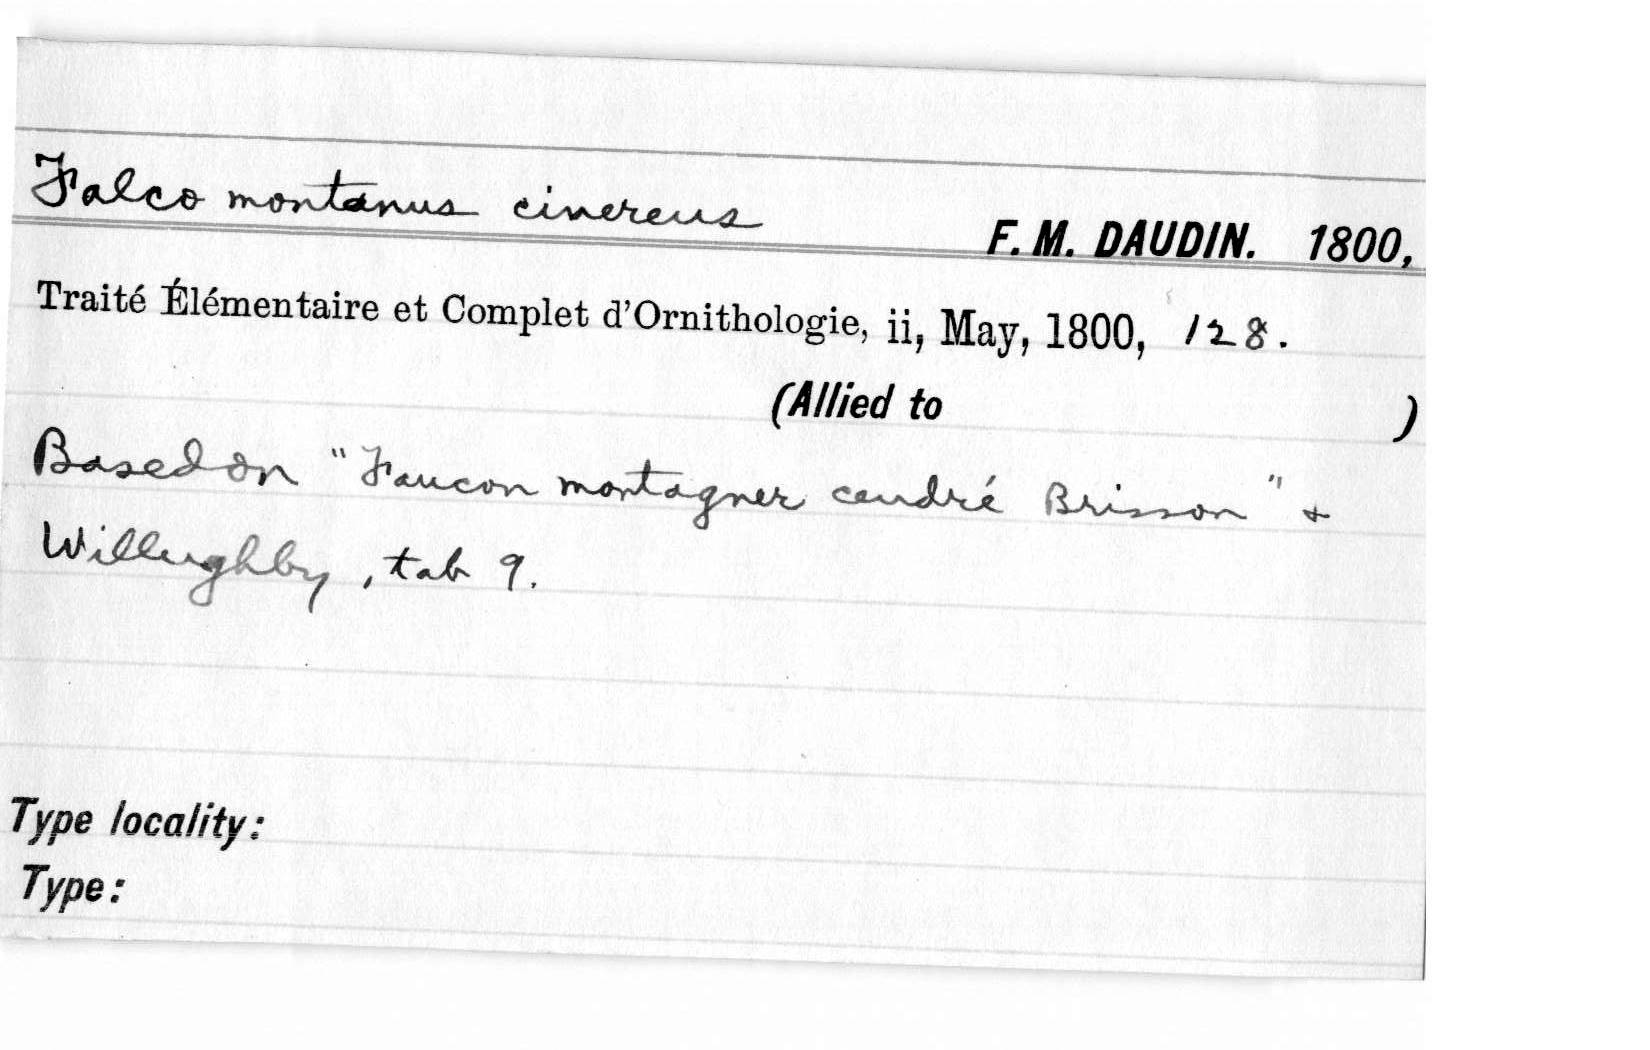 Falco montanus cinereus F. M. DAUDIN. 1800,
Traité Élémentaire et Complet d'Ornithologie, ii, May, 1800, 128.
(Allied to )
Based on "Faucon montagner cendré Brisson" &
Willughby, tab 9.
Type locality:
Type: